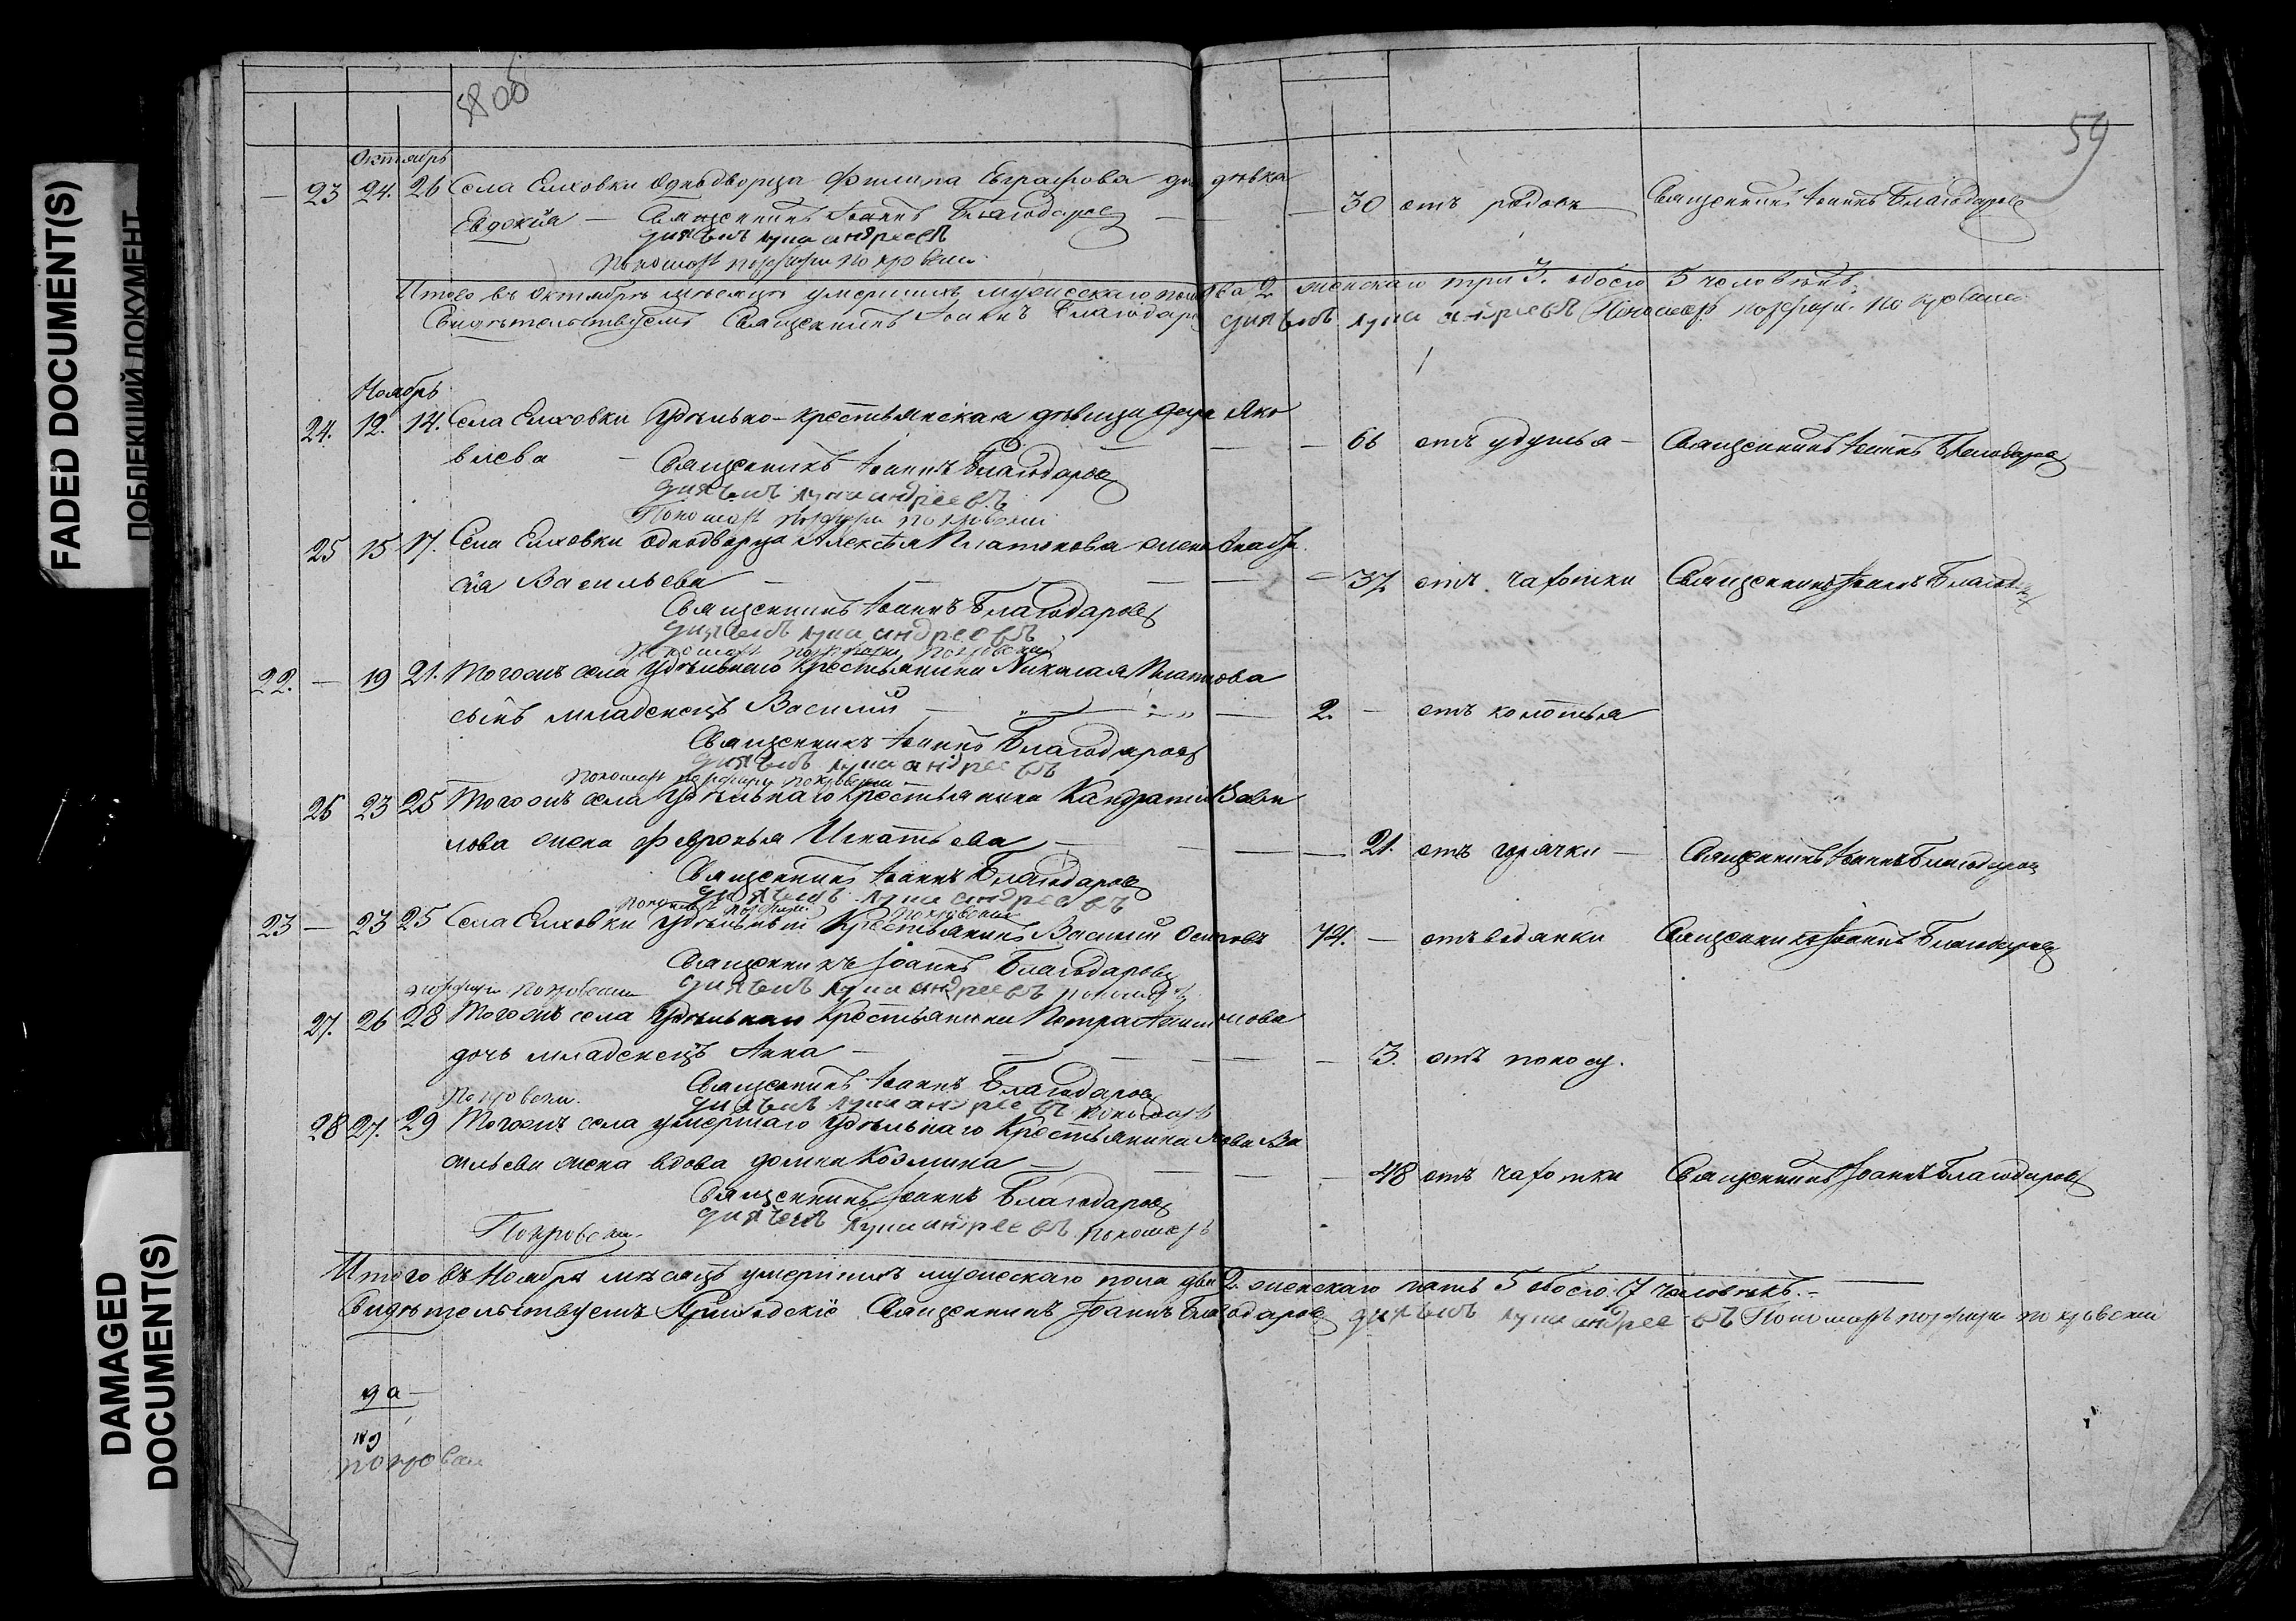 FADED DOCUMENT(S)
ПОБЛЕКШИЙ ДОКУМЕНТ
DAMAGED
DOCUMENT(S)
59
Октябрь
23 24. 26 Села Елховки Однодворца Филипа Евграфова девка
Евдокия — Священникъ Іоаннъ Благодаровъ — 30 отъ родовъ Священникъ Іоаннъ Благодаровъ
дияченъ лука андреевъ
Пономарь порфири покровски
Итого въ Октябрѣ мѣсяцѣ умершихъ мужескаго пола 2 женскаго три 3. обоего 5 человѣкъ.
Свидѣтельствуемъ Священникъ Іоаннъ Благодаровъ дияченъ лука андреевъ Пономарь порфири покровски
Ноябрь
24. 12. 14. Села Елховки Удѣльно-крестьянская дѣвица Яко
влева — — 66 отъ удушья — Священникъ Іоаннъ Благодаровъ
Священникъ Іоаннъ Благодаровъ
дияченъ лука андреевъ
Пономарь порфири покровски
25 15 17. Села Елховки однодворца Алексѣя Платонова жена Анаста
сія Васильева — 37 отъ чахотки Священникъ Іоаннъ Благодаровъ
Священникъ Іоаннъ Благодаровъ
дияченъ лука андреевъ
Пономарь порфири покровски
22. — 19 21. Тогожъ села Удѣльнаго Крестьянина Николая Платонова
сынъ младенецъ Василий — 2. — отъ колотья
Священникъ Іоаннъ Благодаровъ
дияченъ лука андреевъ
Пономарь порфири покровски
26 23 25 Тогожъ села Удѣльнаго Крестьянина Кандратия Вави
лова жена Февронья Игнатьева — 21. отъ горячки — Священникъ Іоаннъ Благодаровъ
Священникъ Іоаннъ Благодаровъ
дияченъ лука андреевъ
Пономарь порфири покровски
23 — 23 25 Села Елховки Удѣльный Крестьянинъ Василий Осиповъ 74. — отъ водянки Священникъ Іоаннъ Благодаровъ
Священникъ Іоаннъ Благодаровъ
порфири покровски дияченъ лука андреевъ пономарь
27. 26 28 Тогожъ села Удѣльнаго Крестьянина Петра
дочь младенецъ Анна — 3. отъ поносу.
Священникъ Іоаннъ Благодаровъ
Покровски. дияченъ лука андреевъ пономарь
28 27. 29 Тогожъ села умершаго Удѣльнаго Крестьянина Ва
сильева жена вдова домна Козмина — 48 отъ чахотки Священникъ Іоаннъ Благодаровъ
Священникъ Іоаннъ Благодаровъ
Покровски. дияченъ лука андреевъ пономарь
Итого въ Ноябрѣ мѣсяцѣ умершихъ мужескаго пола два 2. женскаго пять 5 обоего 7 человѣкъ. —
Свидѣтельствуемъ Священникъ Іоаннъ Благодаровъ дияченъ лука андреевъ Пономарь порфири покровски